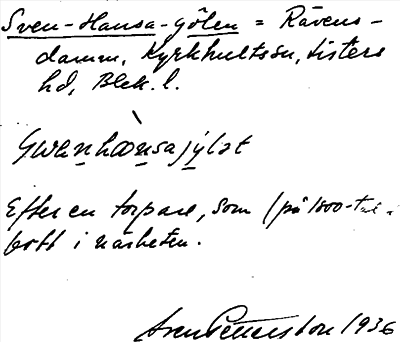 Sven-Hansa-gölen = Rävens-
damm, Kyrkhultssn, Listers
hd, Blek. l.
Efter en torpare, som (på 1800-t.
bott i närheten.
Sven Petterson 1936